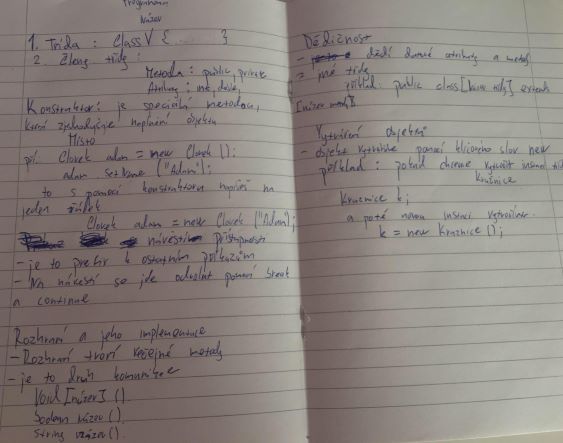 Programování
Název
1. Třída : Class V { ........ }
2. Členy třídy :
Metoda : public, private
Atributy : int, double,
Konstruktor : je speciální metodou,
která zjednodušuje naplnění objektu
Místo
př. Clovek adam = new Clovek ();
adam setName ("Adam");
to s pomocí konstruktoru napíšeš na
jeden řádek
Clovek adam = new Clovek ("Adam);
návěstím přístupnosti
- je to prefix k ostatním příkazům
- Na návěstí se jde odvolat pomocí break
a continue
Rozhraní a jeho implementace
- Rozhraní tvoří veřejné metody
- je to druh komunikace
Void [název] ().
boolean název ().
String název ().
Dědičnost
- dědí datové atributy a metody
= jiné třídy
příklad : public class [název třídy] extends
Vytváření objektů
- objekt vytvoříme pomocí klíčového slov new
příklad : pokud chceme vytvořit instanci třídy
Kružnice
Kruznice k;
a poté novou instanci vytvoříme
k = new Kruznice ();